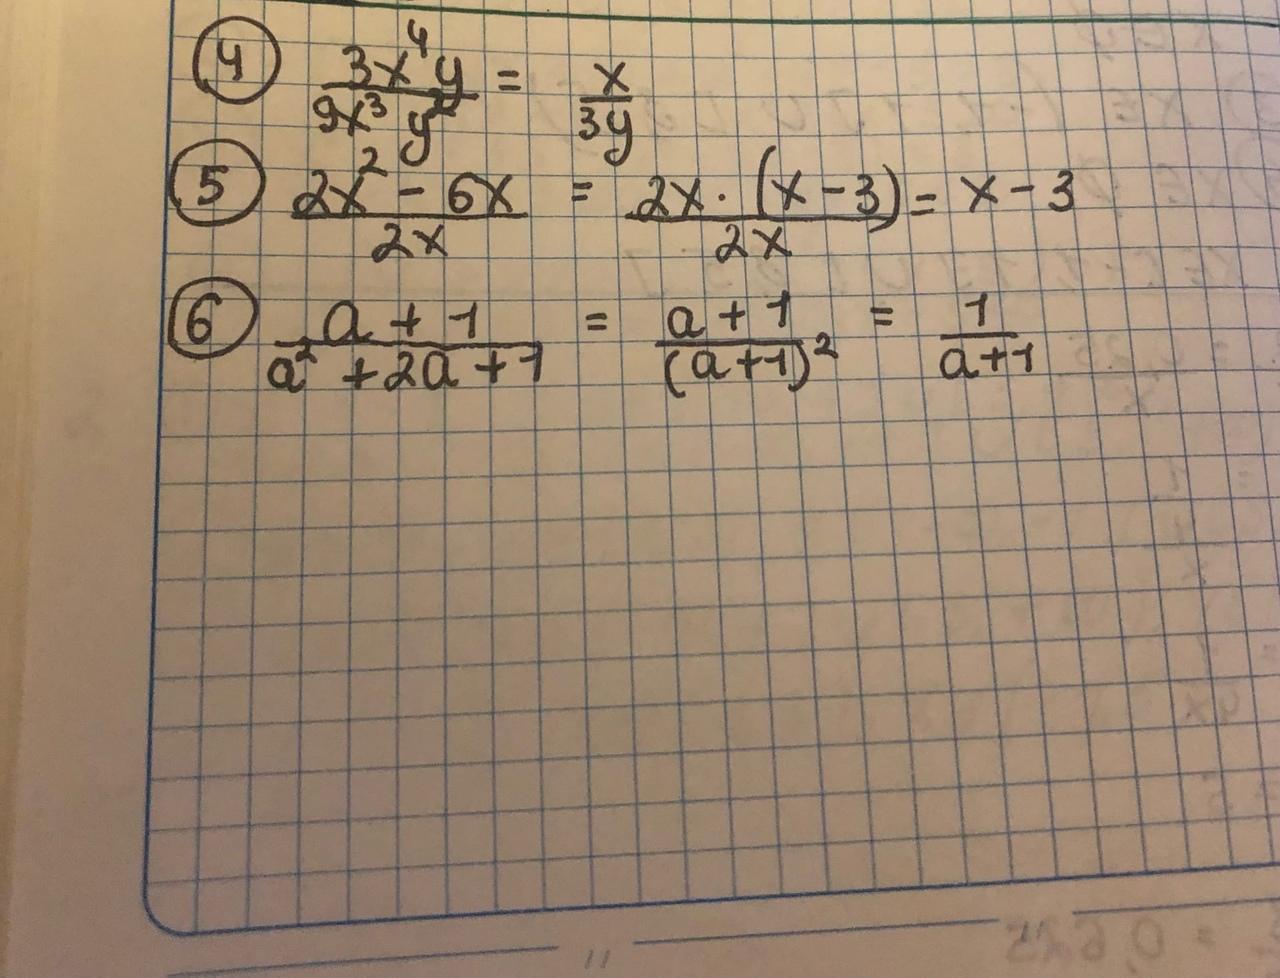 ④ 3x⁴y / 9x³y² = x / 3y
⑤ 2x² - 6x / 2x = 2x · (x - 3) / 2x = x - 3
⑥ a + 1 / a² + 2a + 1 = a + 1 / (a+1)² = 1 / a+1